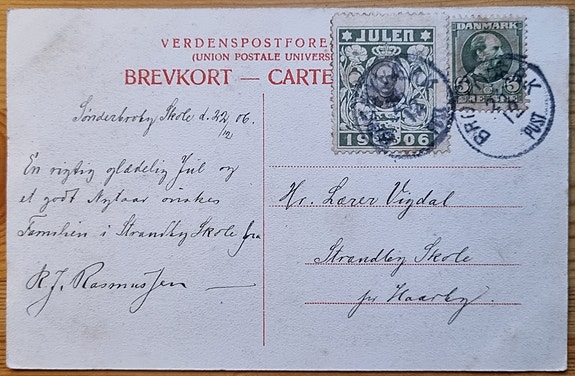 VERDENSPOSTFORE
(UNION POSTALE UNIVERS
BREVKORT — CARTE
JULEN
1906
DANMARK
5 5
POST
Sønderbroby Skole d. 22/12 06.
En rigtig glædelig Jul og
et godt Nytaar ønskes
Familien i Strandby Skole fra
R. J. Rasmussen
Hr. Lærer Vigdal
Strandby Skole
pr Haarby.